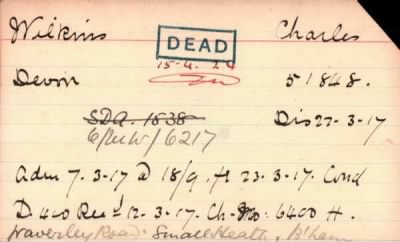 Wilkins DEAD Charles
15-4.24
Devon 51848.
SDA. 1838 Dis 22-3-17
6/MW/6217
Adm 7.3-17 @ 18/9. ft 23.3-17. Cond
D 400 Rec'd 12-3.17. Ch-No: 6400 H.
Waverley Road: Small Heath, B'ham